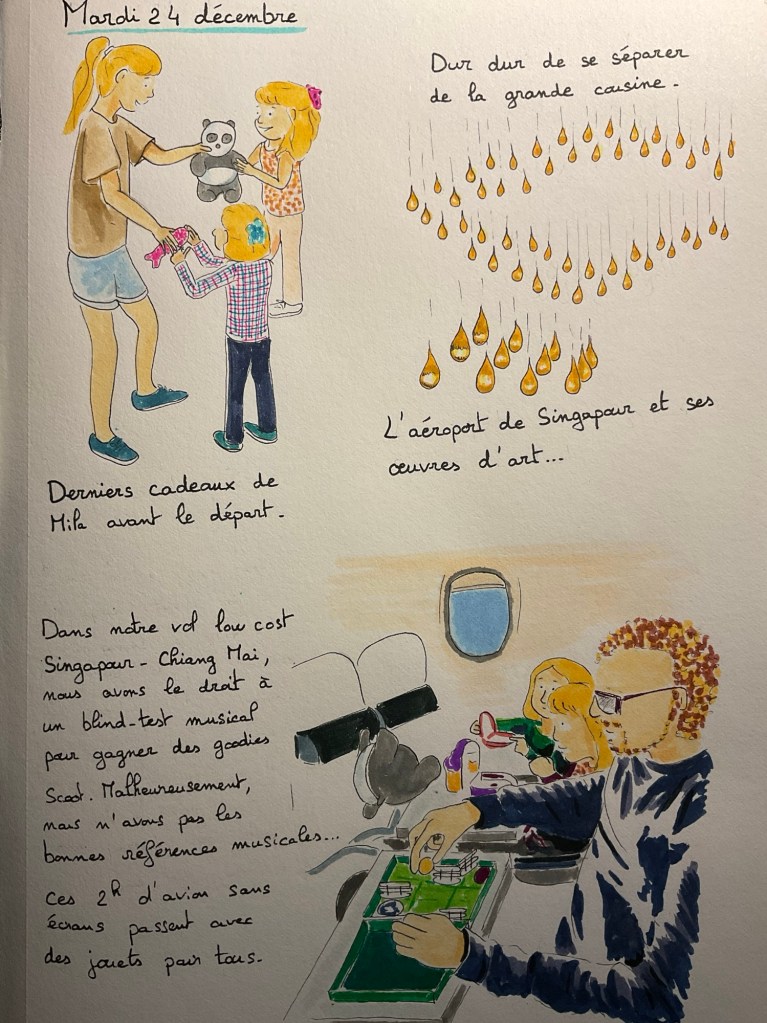 Mardi 24 décembre
Derniers cadeaux de
Mila avant le départ.
Dur dur de se séparer
de la grande cousine.
L'aéroport de Singapour et ses
œuvres d'art...
Dans notre vol low cost
Singapour - Chiang Mai,
nous avons le droit à
un blind-test musical
pour gagner des goodies
Scoot. Malheureusement,
nous n'avons pas les
bonnes références musicales...
Ces 2h d'avion sans
écrans passent avec
des jouets pour tous.